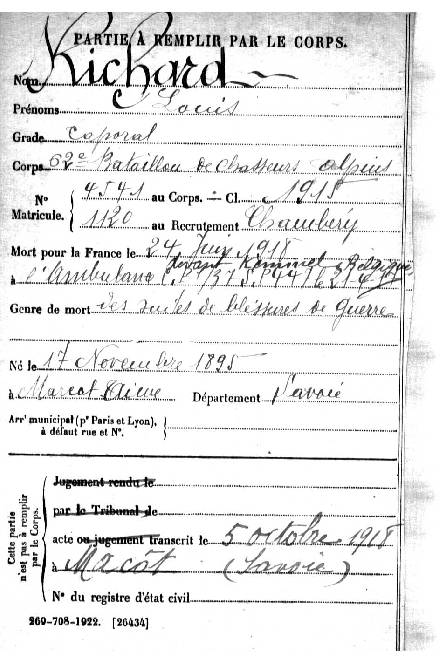 PARTIE À REMPLIR PAR LE CORPS.
Nom Richard
Prénoms Louis
Grade Caporal
Corps 62e Bataillon de chasseurs alpins
N° Matricule. 4541 au Corps. — Cl. 1915
1120 au Recrutement Chambéry
Mort pour la France le 24 Juin 1918
devant Kemmel Belgique
à l'Ambulance
Genre de mort des suites de blessures de Guerre
Né le 17 Novembre 1895
à Macot Département Savoie
Arrt municipal (pr Paris et Lyon),
à défaut rue et N°.
Cette partie
n'est pas à remplir
par le Corps.
Jugement rendu le
par le Tribunal de
acte ou jugement transcrit le 5 octobre 1918
à Macôt (Savoie)
N° du registre d'état civil
269-708-1922. [26434]